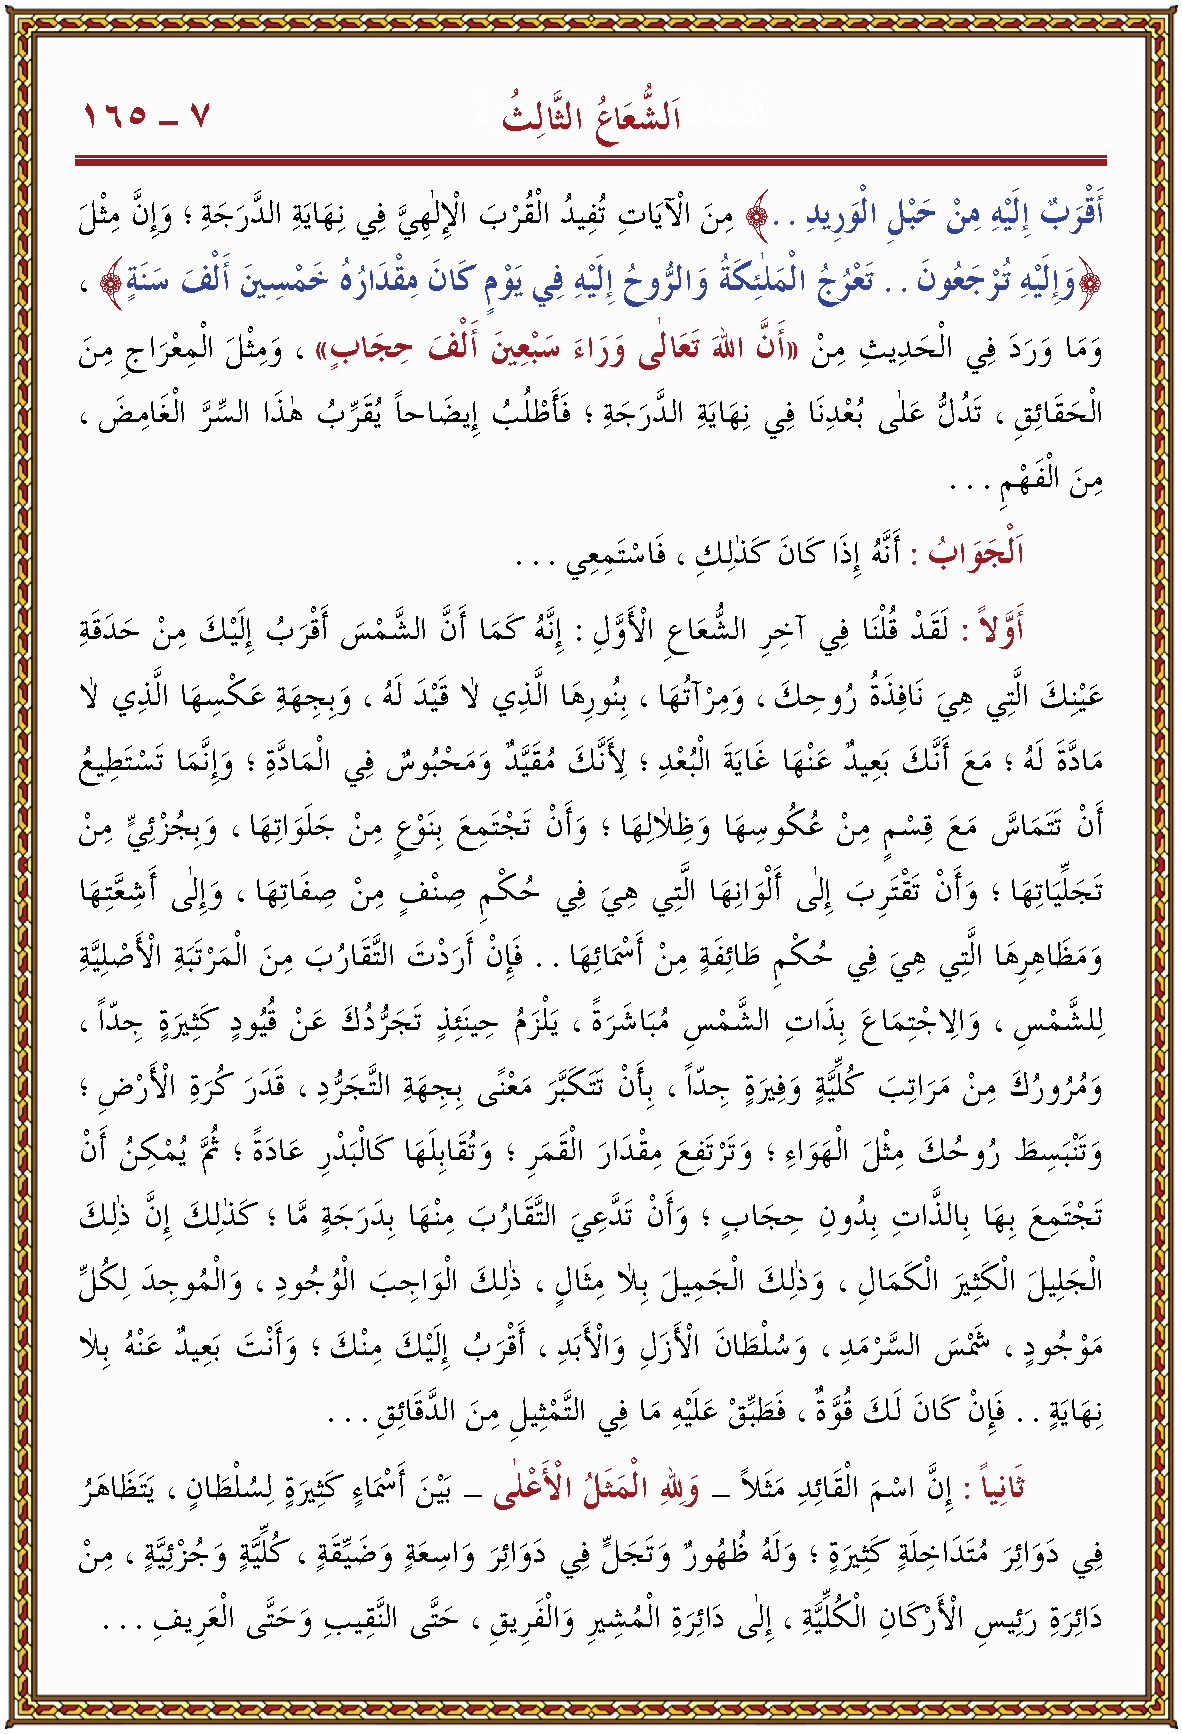 اَلشُّعَاعُ الثَّالِثُ ٧ - ١٦٥
أَقْرَبُ إِلَيْهِ مِنْ حَبْلِ الْوَرِيدِ . . ﴾ مِنَ الْآيَاتِ تُفِيدُ الْقُرْبَ الْإِلٰهِيَّ فِي نِهَايَةِ الدَّرَجَةِ ؛ وَإِنَّ مِثْلَ
﴿ وَإِلَيْهِ تُرْجَعُونَ . . تَعْرُجُ الْمَلٰئِكَةُ وَالرُّوحُ إِلَيْهِ فِي يَوْمٍ كَانَ مِقْدَارُهُ خَمْسِينَ أَلْفَ سَنَةٍ ﴾ ،
وَمَا وَرَدَ فِي الْحَدِيثِ مِنْ «أَنَّ اللهَ تَعَالٰى وَرَاءَ سَبْعِينَ أَلْفَ حِجَابٍ» ، وَمِثْلَ الْمِعْرَاجِ مِنَ
الْحَقَائِقِ ، تَدُلُّ عَلٰى بُعْدِنَا فِي نِهَايَةِ الدَّرَجَةِ ؛ فَأَطْلُبُ إِيضَاحاً يُقَرِّبُ هٰذَا السِّرَّ الْغَامِضَ ،
مِنَ الْفَهْمِ . . .
اَلْجَوَابُ : أَنَّهُ إِذَا كَانَ كَذٰلِكِ ، فَاسْتَمِعِي . . .
أَوَّلاً : لَقَدْ قُلْنَا فِي آخِرِ الشُّعَاعِ الْأَوَّلِ : إِنَّهُ كَمَا أَنَّ الشَّمْسَ أَقْرَبُ إِلَيْكَ مِنْ حَدَقَةِ
عَيْنِكَ الَّتِي هِيَ نَافِذَةُ رُوحِكَ ، وَمِرْآتُهَا ، بِنُورِهَا الَّذِي لَا قَيْدَ لَهُ ، وَبِجِهَةِ عَكْسِهَا الَّذِي لَا
مَادَّةَ لَهُ ؛ مَعَ أَنَّكَ بَعِيدٌ عَنْهَا غَايَةَ الْبُعْدِ ؛ لِأَنَّكَ مُقَيَّدٌ وَمَحْبُوسٌ فِي الْمَادَّةِ ؛ وَإِنَّمَا تَسْتَطِيعُ
أَنْ تَتَمَاسَّ مَعَ قِسْمٍ مِنْ عُكُوسِهَا وَظِلَالِهَا ؛ وَأَنْ تَجْتَمِعَ بِنَوْعٍ مِنْ جَلَوَاتِهَا ، وَبِجُزْئِيٍّ مِنْ
تَجَلِّيَاتِهَا ؛ وَأَنْ تَقْتَرِبَ إِلٰى أَلْوَانِهَا الَّتِي هِيَ فِي حُكْمِ صِنْفٍ مِنْ صِفَاتِهَا ، وَإِلٰى أَشِعَّتِهَا
وَمَظَاهِرِهَا الَّتِي هِيَ فِي حُكْمِ طَائِفَةٍ مِنْ أَسْمَائِهَا . . فَإِنْ أَرَدْتَ التَّقَارُبَ مِنَ الْمَرْتَبَةِ الْأَصْلِيَّةِ
لِلشَّمْسِ ، وَالِاجْتِمَاعَ بِذَاتِ الشَّمْسِ مُبَاشَرَةً ، يَلْزَمُ حِينَئِذٍ تَجَرُّدُكَ عَنْ قُيُودٍ كَثِيرَةٍ جِدّاً ،
وَمُرُورُكَ مِنْ مَرَاتِبَ كُلِّيَّةٍ وَفِيرَةٍ جِدّاً ، بِأَنْ تَتَكَبَّرَ مَعْنًى بِجِهَةِ التَّجَرُّدِ ، قَدَرَ كُرَةِ الْأَرْضِ ؛
وَتَنْبَسِطَ رُوحُكَ مِثْلَ الْهَوَاءِ ؛ وَتَرْتَفِعَ مِقْدَارَ الْقَمَرِ ؛ وَتُقَابِلَهَا كَالْبَدْرِ عَادَةً ؛ ثُمَّ يُمْكِنُ أَنْ
تَجْتَمِعَ بِهَا بِالذَّاتِ بِدُونِ حِجَابٍ ؛ وَأَنْ تَدَّعِيَ التَّقَارُبَ مِنْهَا بِدَرَجَةٍ مَّا ؛ كَذٰلِكَ إِنَّ ذٰلِكَ
الْجَلِيلَ الْكَثِيرَ الْكَمَالِ ، وَذٰلِكَ الْجَمِيلَ بِلَا مِثَالٍ ، ذٰلِكَ الْوَاجِبَ الْوُجُودِ ، وَالْمُوجِدَ لِكُلِّ
مَوْجُودٍ ، شَمْسَ السَّرْمَدِ ، وَسُلْطَانَ الْأَزَلِ وَالْأَبَدِ ، أَقْرَبُ إِلَيْكَ مِنْكَ ؛ وَأَنْتَ بَعِيدٌ عَنْهُ بِلَا
نِهَايَةٍ . . فَإِنْ كَانَ لَكَ قُوَّةٌ ، فَطَبِّقْ عَلَيْهِ مَا فِي التَّمْثِيلِ مِنَ الدَّقَائِقِ . . .
ثَانِياً : إِنَّ اسْمَ الْقَائِدِ مَثَلاً - وَلِلهِ الْمَثَلُ الْأَعْلٰى - بَيْنَ أَسْمَاءٍ كَثِيرَةٍ لِسُلْطَانٍ ، يَتَظَاهَرُ
فِي دَوَائِرَ مُتَدَاخِلَةٍ كَثِيرَةٍ ؛ وَلَهُ ظُهُورٌ وَتَجَلٍّ فِي دَوَائِرَ وَاسِعَةٍ وَضَيِّقَةٍ ، كُلِّيَّةٍ وَجُزْئِيَّةٍ ، مِنْ
دَائِرَةِ رَئِيسِ الْأَرْكَانِ الْكُلِّيَّةِ ، إِلٰى دَائِرَةِ الْمُشِيرِ وَالْفَرِيقِ ، حَتَّى النَّقِيبِ وَحَتَّى الْعَرِيفِ . . .